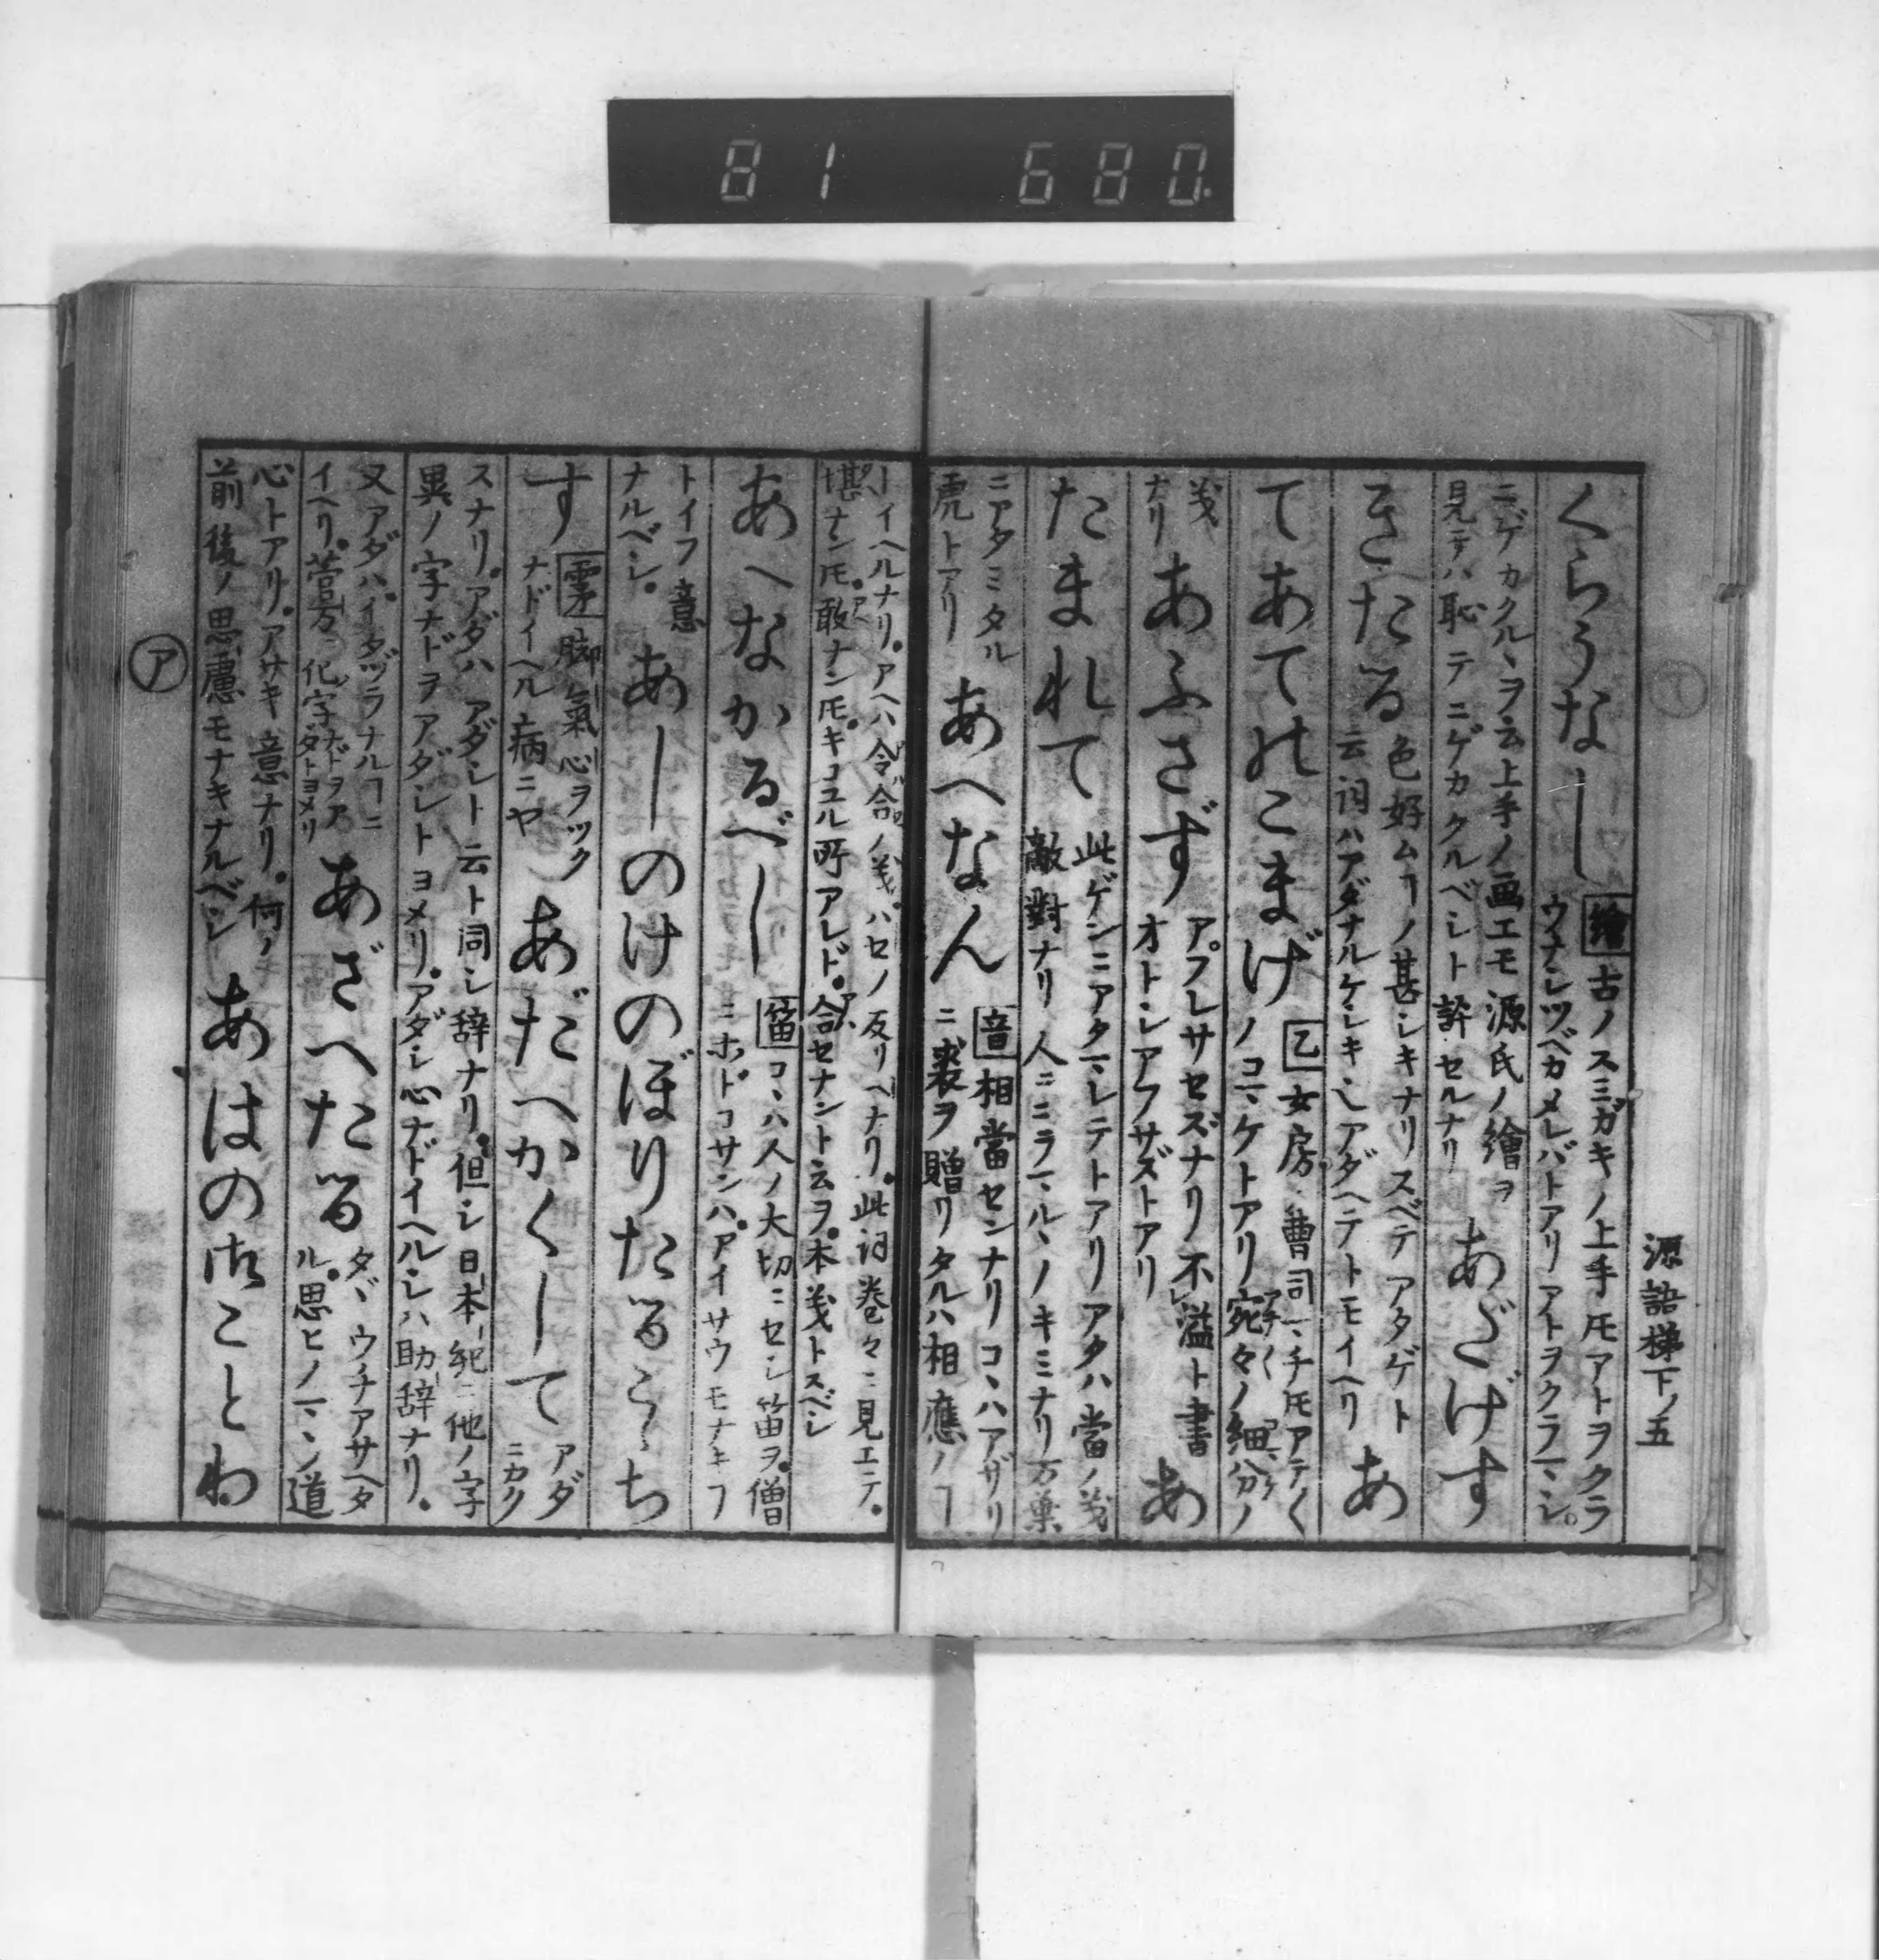 81 680
源語梯下ノ五
くらうなし 繪 古ノスミガキノ上手𪜈アトヲクラ
ウナシツベカメレバトアリアトヲクラマシ。
ニゲカクルヽヲ云上手ノ画エモ源氏ノ繪ヲ
見テハ恥テニゲカクルベシト
セルナリ あざげす
きたる 色好ムヿノ甚シキナリスベテアタゲト
云詞ハアダナルケシキ也アダヘテトモイヘリ あ
てあてのこまげ 乙 女房曹司マチ𪜈アテ〱
ノコマケトアリ宛々ノ細分ノ
義
ナリ あふさず アフレサセズナリ不溢ト書
オトシアフサズトアリ あ
たまれて 此ゲシニアタマレテトアリアタハ當ノ義
敵對ナリ人ニニラマルヽノキミナリ万葉
ニアタミタル
虎トアリ あへなん 音 相當センナリコヽハアザリ
ニ裘ヲ贈リタルハ相應ノヿ
ーイヘルナリ。アヘハ令合ノ義。ハセノ反リヘナリ。此詞巻々ニ見エテ。
堪ナン𪜈。敢ナン𪜈。キコユル所アレド。合セナント云ヲ。本義トスベシ
あへなかるべし 笛 コヽハ人ノ大切ニセシ笛ヲ。僧
ニホドコサンハ。アイサウモナキヿ
トイフ意
ナルベシ。 あしのけのぼりたるこゝち
す 雲 脚氣心ヲツク
ナドイヘル病ニヤ あだへかくして アダ
ニカク
スナリ。アダハアダシト云ト同シ辞ナリ。但シ日本紀ニ他ノ字
異ノ字ナドヲアダシトヨメリ。アダシ心ナドイヘルシハ助辞ナリ。
又アダハ。イタヅラナルヿニ
イヘリ。菅万ニ化字ナドヲアダトヨメリ あざへたる タヾウチアサヘタ
ル。思ヒノマヽン道
心トアリ。アサキ意ナリ。何ノ
前後ノ思慮モナキナルベシ あはの御ことわ
ア